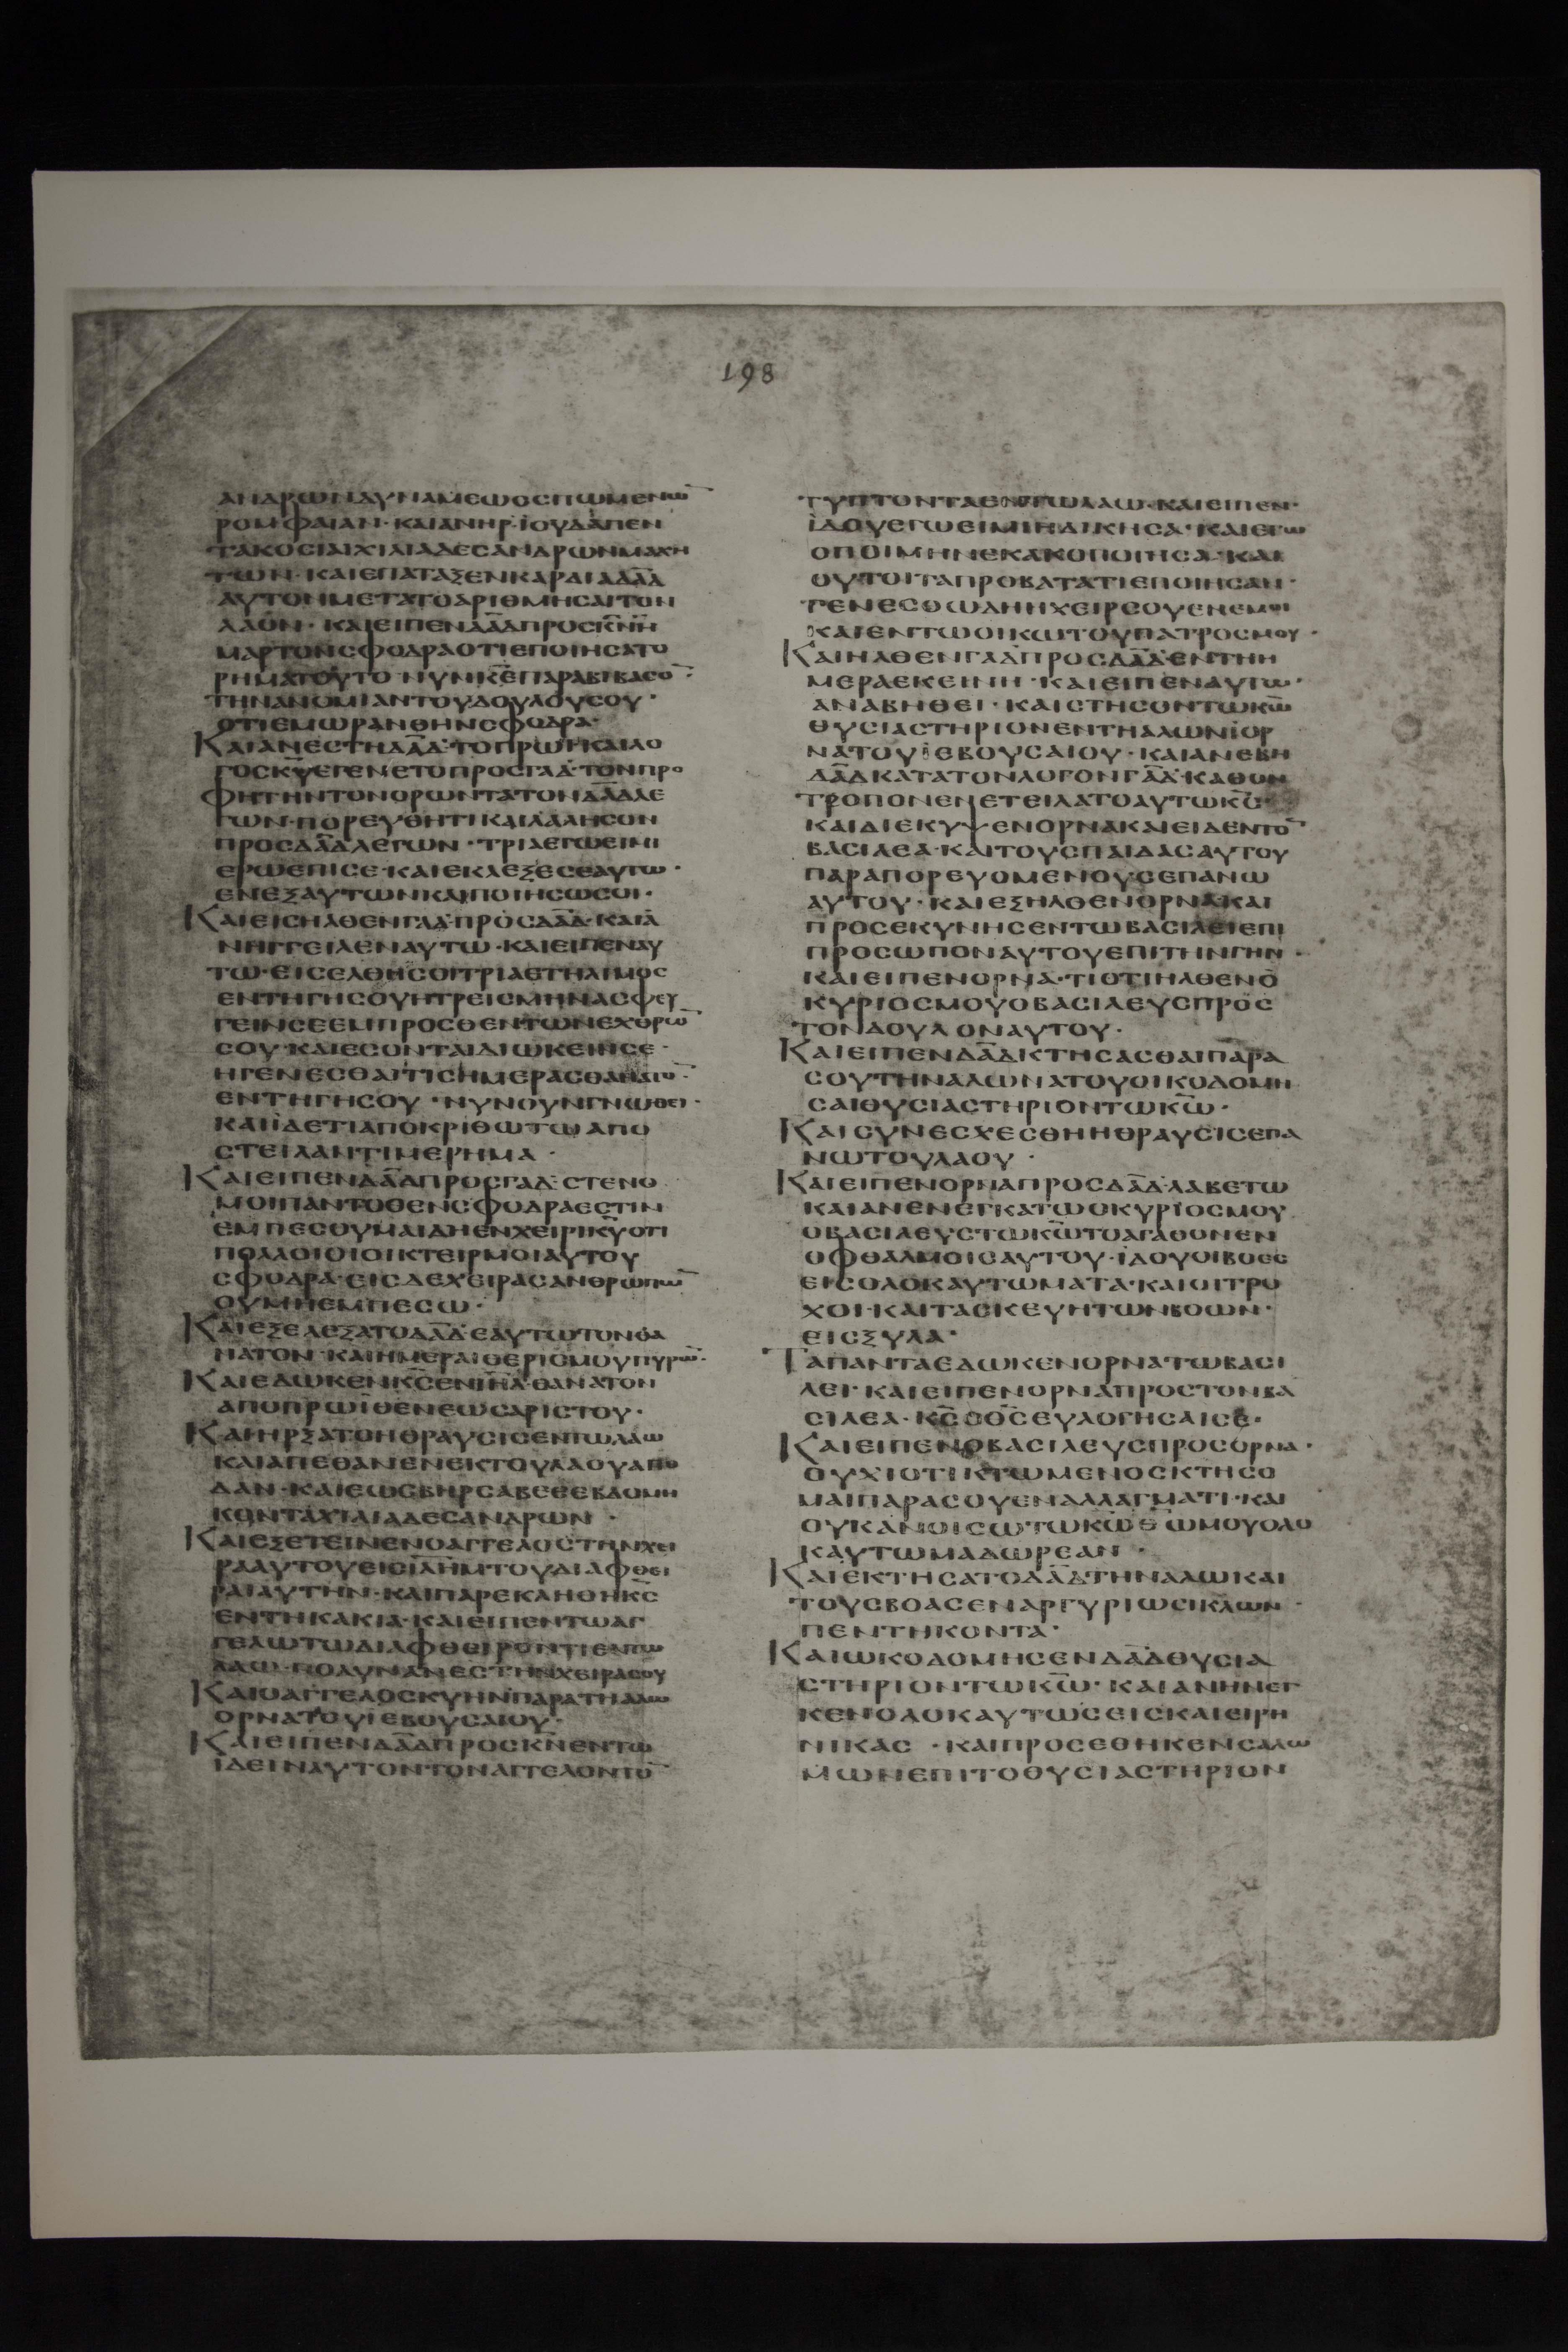 198
ΑΝΔΡΩΝΔΥΝΑΜΕΩΣ ΣΠΩΜΕΝΩ̅
ΡΟΜΦΑΙΑΝ·ΚΑΙΑΝΗΡ·ΙΟΥΔΑΠΕΝ
ΤΑΚΟΣΙΑΙΧΙΛΙΑΔΕΣΑΝΔΡΩΝΜΑΧΗ
ΤΩΝ·ΚΑΙΕΠΑΤΑΞΕΝΚΑΡΔΙΑΔΑ̅Δ
ΑΥΤΟΝΜΕΤΑΤΟΑΡΙΘΜΗΣΑΙΤΟΝ
ΛΑΟΝ·ΚΑΙΕΙΠΕΝΔΑ̅ΔΠΡΟΣΚ̅Ν̅Η
ΜΑΡΤΟΝΣΦΟΔΡΑΟΤΙΕΠΟΙΗΣΑΤΟ
ΡΗΜΑΤΟΥΤΟ·ΝΥΝΚ̅Ε̅ΠΑΡΑΒΙΒΑΣΟ̅·
ΤΗΝΑΝΟΜΙΑΝΤΟΥΔΟΥΛΟΥΣΟΥ·
ΟΤΙΕΜΩΡΑΝΘΗΝΣΦΟΔΡΑ·
ΚΑΙΑΝΕΣΤΗΔΑ̅Δ·ΤΟΠΡΩΙΚΑΙΛΟ
ΓΟΣΚ̅Υ̅ΕΓΕΝΕΤΟΠΡΟΣΓΑΔ·ΤΟΝΠΡΟ
ΦΗΤΗΝΤΟΝΟΡΩΝΤΑΤΟΝΔΑ̅ΔΛΕ
ΓΩΝ·ΠΟΡΕΥΘΗΤΙΚΑΙΛΑΛΗΣΟΝ
ΠΡΟΣΔΑ̅ΔΛΕΓΩΝ·ΤΡΙΑΕΓΩΕΙΜΙ
ΕΡΩΕΠΙΣΕ·ΚΑΙΕΚΛΕΞΕΣΕΑΥΤΩ·
ΕΝΕΞΑΥΤΩΝΚΑΙΠΟΙΗΣΩΣΟΙ·
ΚΑΙΕΙΣΗΛΘΕΝΓΑΔ·ΠΡΟΣΔΑ̅Δ·ΚΑΙΑ
ΝΗΓΓΕΙΛΕΝΑΥΤΩ·ΚΑΙΕΙΠΕΝΑΥ
ΤΩ·ΕΙΣΕΛΘΗΣΟΙΤΡΙΑΕΤΗΛΙΜΟΣ
ΕΝΤΗΓΗΣΟΥΗΤΡΕΙΣΜΗΝΑΣΦΕΥ
ΓΕΙΝΣΕΕΜΠΡΟΣΘΕΝΤΩΝΕΧΘΡΩ̅
ΣΟΥ·ΚΑΙΕΣΟΝΤΑΙΔΙΩΚΕΙΝΣΕ·
ΗΓΕΝΕΣΘΑΙΤΙΣΗΜΕΡΑΣΘΑΝΑΤΟ̅·
ΕΝΤΗΓΗΣΟΥ·ΝΥΝΟΥΝΓΝΩΘΕΙ·
ΚΑΙΪΔΕΤΙΑΠΟΚΡΙΘΩΤΩΑΠΟ
ΣΤΕΙΛΑΝΤΙΜΕΡΗΜΑ·
ΚΑΙΕΙΠΕΝΔΑ̅ΔΠΡΟΣΓΑΔ·ΣΤΕΝΟ
ΜΟΙΠΑΝΤΟΘΕΝΣΦΟΔΡΑΕΣΤΙΝ
ΕΜΠΕΣΟΥΜΑΙΔΗΕΝΧΕΙΡΙΚ̅Υ̅ΟΤΙ
ΠΟΛΛΟΙΟΙΟΙΚΤΕΙΡΜΟΙΑΥΤΟΥ
ΣΦΟΔΡΑ·ΕΙΣΔΕΧΕΙΡΑΣΑΝΘΡΩΠΩ̅
ΟΥΜΗΕΜΠΕΣΩ·
ΚΑΙΕΞΕΛΕΞΑΤΟΔΑ̅Δ·ΕΑΥΤΩΤΟΝΘΑ
ΝΑΤΟΝ·ΚΑΙΗΜΕΡΑΙΘΕΡΙΣΜΟΥΠΥΡΩ̅·
ΚΑΙΕΔΩΚΕΝΚ̅Σ̅ΕΝΙ̅Η̅Λ·ΘΑΝΑΤΟΝ
ΑΠΟΠΡΩΪΘΕΝΕΩΣΑΡΙΣΤΟΥ·
ΚΑΙΗΡΞΑΤΟΗΘΡΑΥΣΙΣΕΝΤΩΛΑΩ
ΚΑΙΑΠΕΘΑΝΕΝΕΚΤΟΥΛΑΟΥΑΠΟ
ΔΑΝ·ΚΑΙΕΩΣΒΗΡΣΑΒΕΕΕΒΔΟΜΗ
ΚΟΝΤΑΧΙΛΙΑΔΕΣΑΝΔΡΩΝ·
ΚΑΙΕΞΕΤΕΙΝΕΝΟΑΓΓΕΛΟΣΤΗΝΧΕΙ
ΡΑΑΥΤΟΥΕΙΣΙ̅Λ̅Η̅Μ·ΤΟΥΔΙΑΦΘΕΙ
ΡΑΙΑΥΤΗΝ·ΚΑΙΠΑΡΕΚΛΗΘΗΚ̅Σ̅
ΕΝΤΗΚΑΚΙΑ·ΚΑΙΕΙΠΕΝΤΩΑΓ
ΓΕΛΩΤΩΔΙΑΦΘΕΙΡΟΝΤΙΕΝΤΩ
ΛΑΩ·ΠΟΛΥΝΑΝΕΣΤΗΝΧΕΙΡΑΣΟΥ
ΚΑΙΟΑΓΓΕΛΟΣΚ̅Υ̅ΗΝΠΑΡΑΤΗΑΛΩ
ΟΡΝΑΤΟΥΙΕΒΟΥΣΑΙΟΥ·
ΚΑΙΕΙΠΕΝΔΑ̅ΔΠΡΟΣΚ̅Ν̅ΕΝΤΩ
ΪΔΕΙΝΑΥΤΟΝΤΟΝΑΓΓΕΛΟΝΤΟ̅
ΤΥΠΤΟΝΤΑΕΝΤΩΛΑΩ·ΚΑΙΕΙΠΕΝ·
ΪΔΟΥΕΓΩΕΙΜΙΗΔΙΚΗΣΑ·ΚΑΙΕΓΩ
ΟΠΟΙΜΗΝΕΚΑΚΟΠΟΙΗΣΑ·ΚΑΙ
ΟΥΤΟΙΤΑΠΡΟΒΑΤΑΤΙΕΠΟΙΗΣΑΝ·
ΓΕΝΕΣΘΩΔΗΗΧΕΙΡΣΟΥΕΝΕΜΟΙ
ΚΑΙΕΝΤΩΟΙΚΩΤΟΥΠΑΤΡΟΣΜΟΥ·
ΚΑΙΗΛΘΕΝΓΑΔΠΡΟΣΔΑ̅ΔΕΝΤΗΗ
ΜΕΡΑΕΚΕΙΝΗ·ΚΑΙΕΙΠΕΝΑΥΤΩ·
ΑΝΑΒΗΘΕΙ·ΚΑΙΣΤΗΣΟΝΤΩΚ̅Ω̅
ΘΥΣΙΑΣΤΗΡΙΟΝΕΝΤΗΑΛΩΝΙΟΡ
ΝΑΤΟΥΪΕΒΟΥΣΑΙΟΥ·ΚΑΙΑΝΕΒΗ
ΔΑ̅ΔΚΑΤΑΤΟΝΛΟΓΟΝΓΑΔ·ΚΑΘΟΝ
ΤΡΟΠΟΝΕΝΕΤΕΙΛΑΤΟΑΥΤΩΚ̅Σ̅·
ΚΑΙΔΙΕΚΥΨΕΝΟΡΝΑΚΑΙΕΙΔΕΝΤΟ̅
ΒΑΣΙΛΕΑ·ΚΑΙΤΟΥΣΠΑΙΔΑΣΑΥΤΟΥ
ΠΑΡΑΠΟΡΕΥΟΜΕΝΟΥΣΕΠΑΝΩ
ΑΥΤΟΥ·ΚΑΙΕΞΗΛΘΕΝΟΡΝΑ·ΚΑΙ
ΠΡΟΣΕΚΥΝΗΣΕΝΤΩΒΑΣΙΛΕΙΕΠΙ
ΠΡΟΣΩΠΟΝΑΥΤΟΥΕΠΙΤΗΝΓΗΝ·
ΚΑΙΕΙΠΕΝΟΡΝΑ·ΤΙΟΤΙΗΛΘΕΝΟ
ΚΥΡΙΟΣΜΟΥΟΒΑΣΙΛΕΥΣΠΡΟΣ
ΤΟΝΔΟΥΛΟΝΑΥΤΟΥ·
ΚΑΙΕΙΠΕΝΔΑ̅ΔΚΤΗΣΑΣΘΑΙΠΑΡΑ
ΣΟΥΤΗΝΑΛΩΝΑΤΟΥΟΙΚΟΔΟΜΗ
ΣΑΙΘΥΣΙΑΣΤΗΡΙΟΝΤΩΚ̅Ω̅·
ΚΑΙΣΥΝΕΣΧΕΣΘΗΗΘΡΑΥΣΙΣΕΠΑ
ΝΩΤΟΥΛΑΟΥ·
ΚΑΙΕΙΠΕΝΟΡΝΑΠΡΟΣΔΑ̅Δ·ΛΑΒΕΤΩ
ΚΑΙΑΝΕΝΕΓΚΑΤΩΟΚΥΡΙΟΣΜΟΥ
ΟΒΑΣΙΛΕΥΣΤΩΚ̅Ω̅ΤΟΑΓΑΘΟΝΕΝ
ΟΦΘΑΛΜΟΙΣΑΥΤΟΥ·ΙΔΟΥΟΙΒΟΕΣ
ΕΙΣΟΛΟΚΑΥΤΩΜΑΤΑ·ΚΑΙΟΙΤΡΟ
ΧΟΙ·ΚΑΙΤΑΣΚΕΥΗΤΩΝΒΟΩΝ·
ΕΙΣΞΥΛΑ·
ΤΑΠΑΝΤΑΕΔΩΚΕΝΟΡΝΑΤΩΒΑΣΙ
ΛΕΙ·ΚΑΙΕΙΠΕΝΟΡΝΑΠΡΟΣΤΟΝΒΑ
ΣΙΛΕΑ·Κ̅Σ̅ΟΘ̅Σ̅ΕΥΛΟΓΗΣΑΙΣΕ·
ΚΑΙΕΙΠΕΝΟΒΑΣΙΛΕΥΣΠΡΟΣΟΡΝΑ·
ΟΥΧΙΟΤΙΚΤΩΜΕΝΟΣΚΤΗΣΟ
ΜΑΙΠΑΡΑΣΟΥΕΝΑΛΛΑΓΜΑΤΙ·ΚΑΙ
ΟΥΚΑΝΟΙΣΩΤΩΚ̅Ω̅Θ̅Ω̅ΜΟΥΟΛΟ
ΚΑΥΤΩΜΑΔΩΡΕΑΝ·
ΚΑΙΕΚΤΗΣΑΤΟΔΑ̅ΔΤΗΝΑΛΩΚΑΙ
ΤΟΥΣΒΟΑΣΕΝΑΡΓΥΡΙΩΣΙΚΛΩΝ·
ΠΕΝΤΗΚΟΝΤΑ·
ΚΑΙΩΚΟΔΟΜΗΣΕΝΔΑ̅ΔΘΥΣΙΑ
ΣΤΗΡΙΟΝΤΩΚ̅Ω̅·ΚΑΙΑΝΗΝΕΓ
ΚΕΝΟΛΟΚΑΥΤΩΣΕΙΣΚΑΙΕΙΡΗ
ΝΙΚΑΣ·ΚΑΙΠΡΟΣΕΘΗΚΕΝΣΑΛΩ
ΜΩΝΕΠΙΤΟΘΥΣΙΑΣΤΗΡΙΟΝ